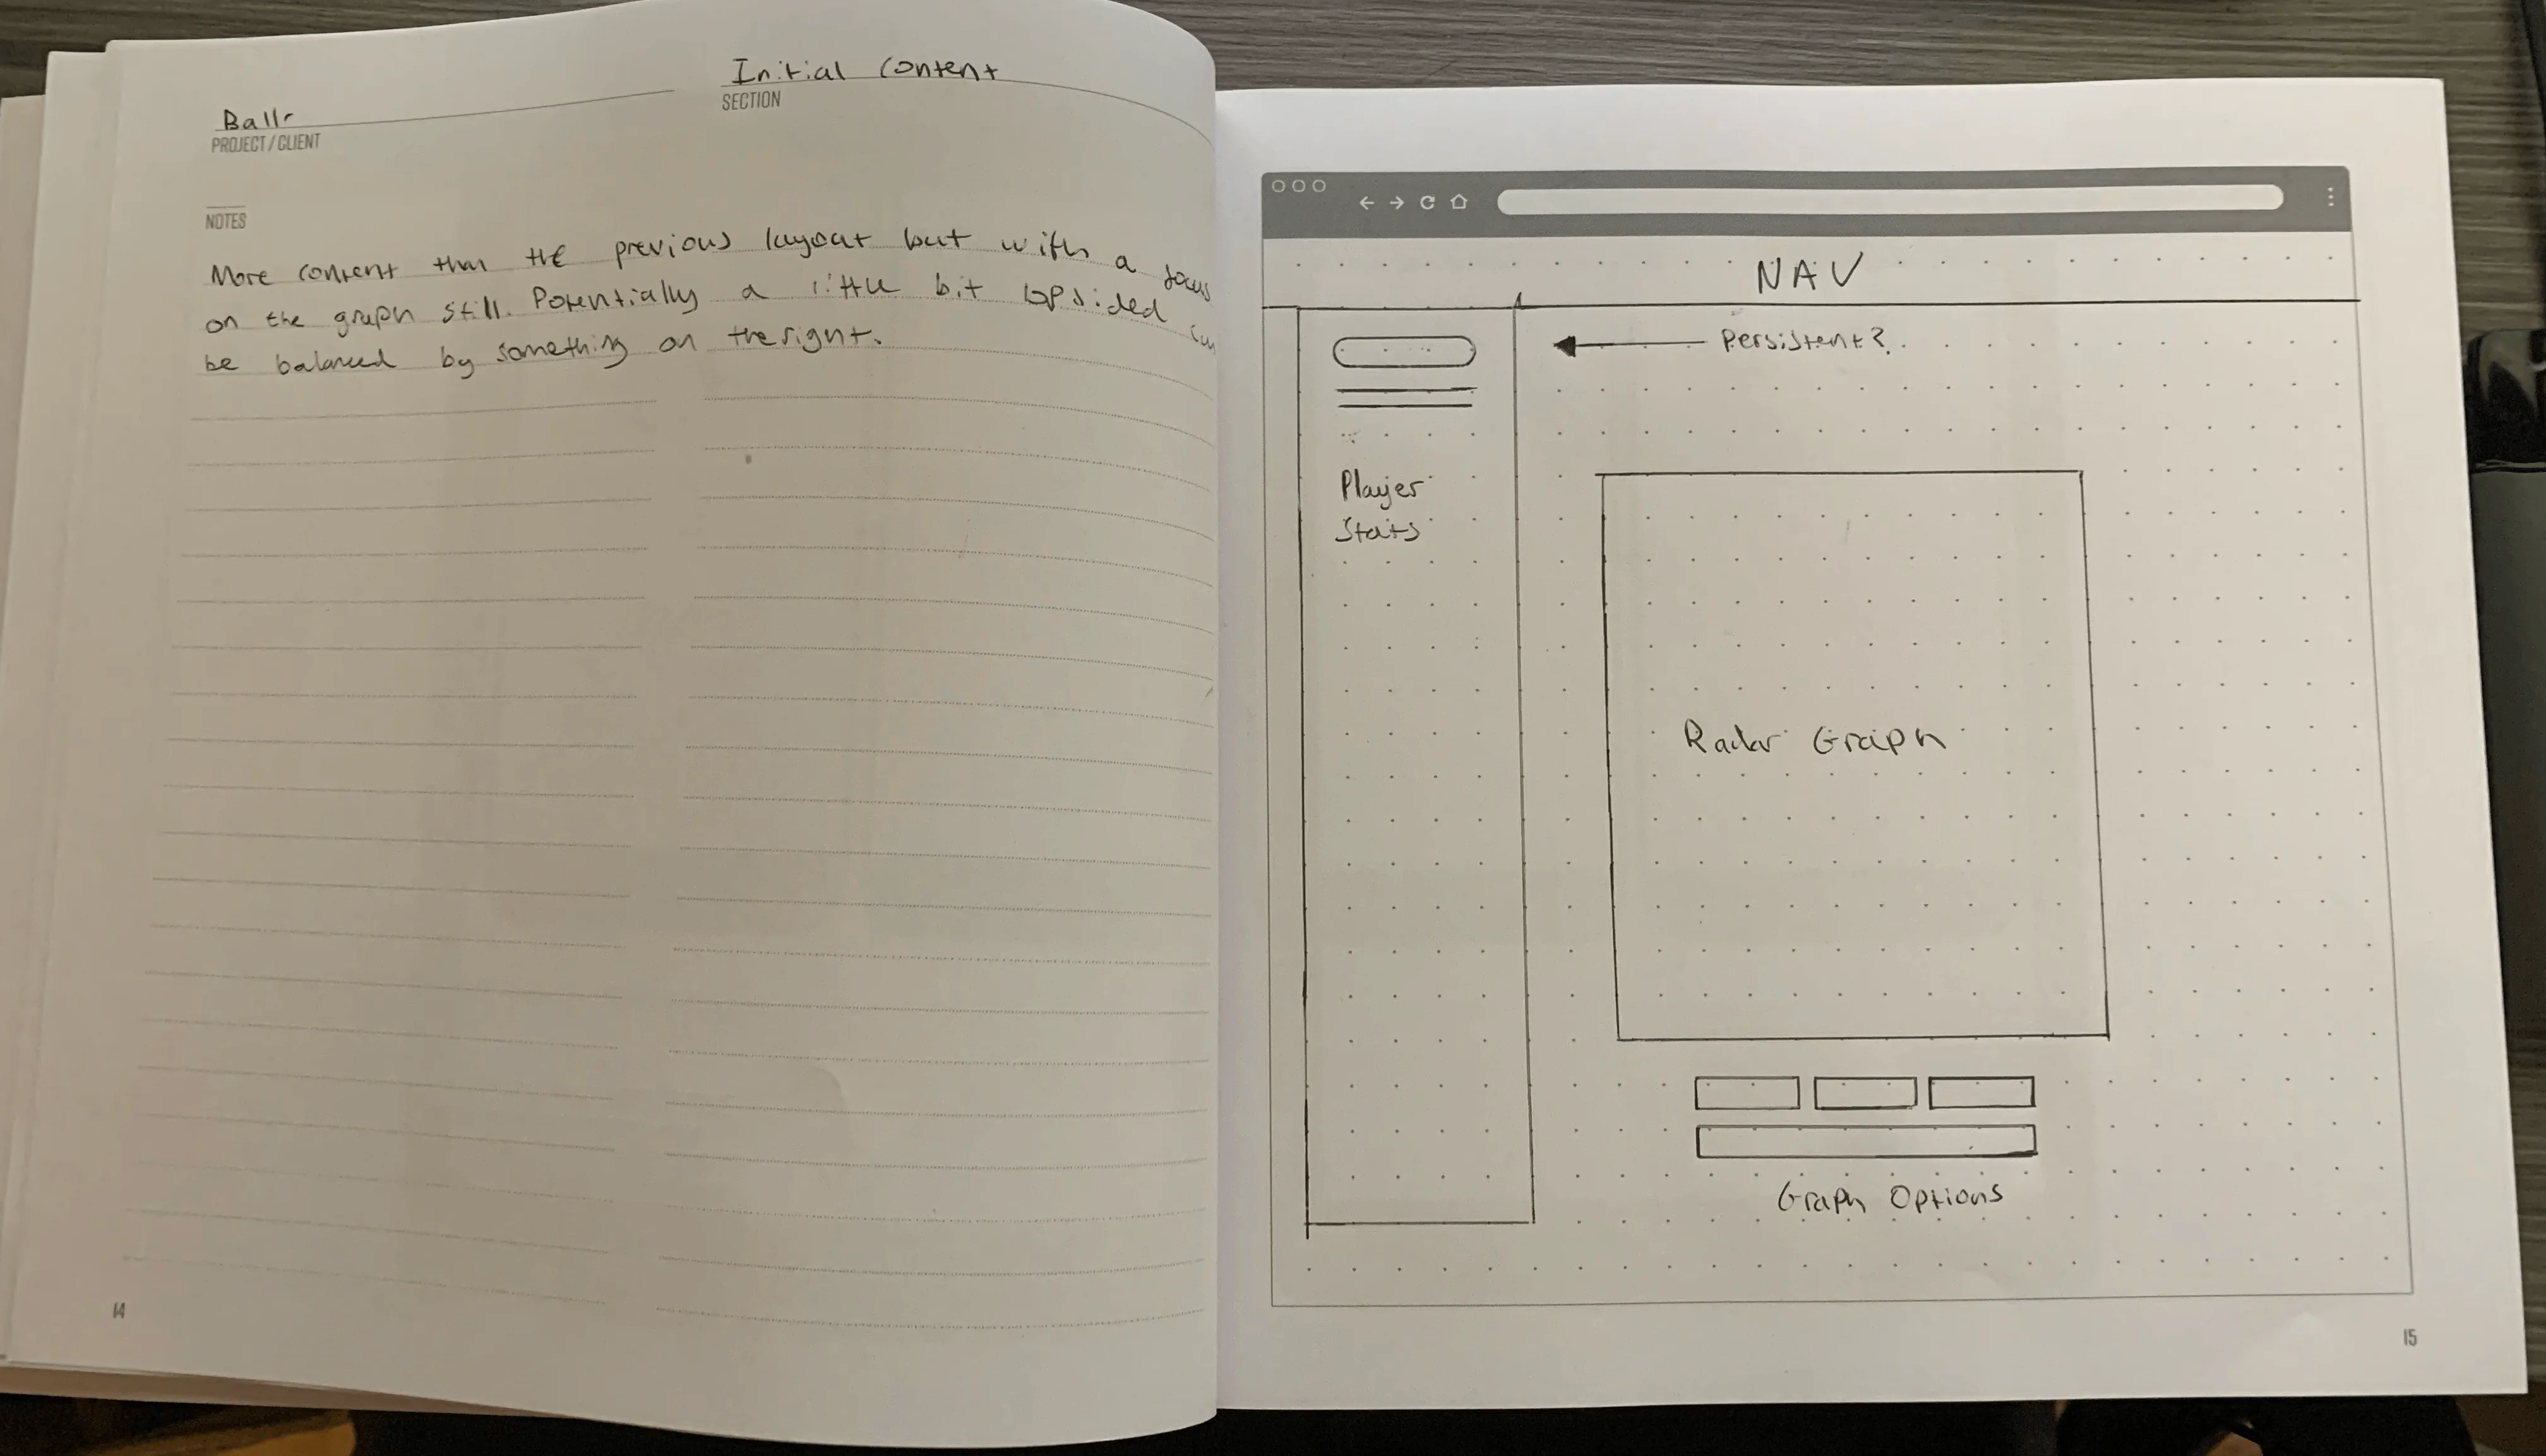 Initial Content
SECTION
Ballr
PROJECT/CLIENT
NOTES
More content than the previous layout but with a focus
on the graph still. Potentially a little bit lopsided can
be balanced by something on the right.
14
NAV
Persistent?
Player
Stats
Radar Graph
Graph Options
15